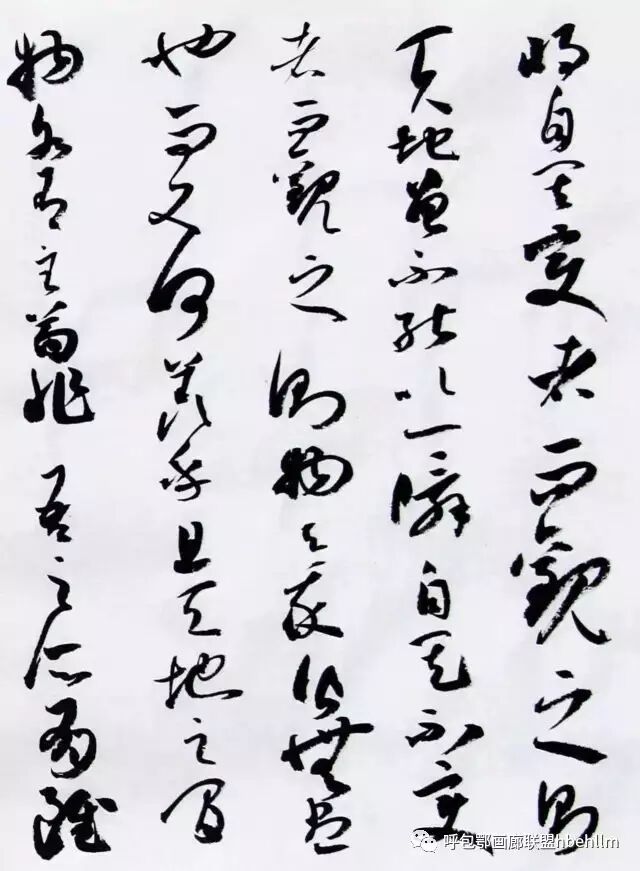 將自其變者而觀之則
天地曾不能以一瞬自其不變
者而觀之則物與我皆無盡
也而又何羨乎且天地之間
物各有主苟非吾之所有雖
呼包鄂画廊联盟hbehllm